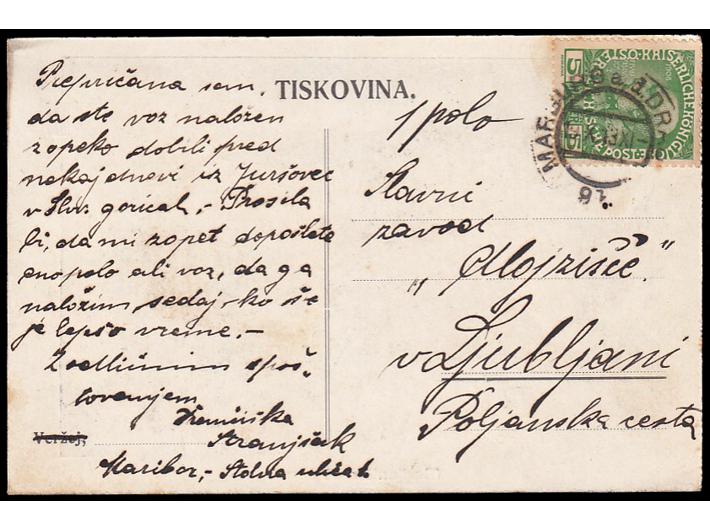 TISKOVINA.
Prepričana sem,
da ste voz naložen
z opeko dobili pred
nekaj dnevi iz Juršovec
v Slov. goricah. - Prosila
bi, da mi zopet dopošljete
eno polo ali voz, da ga
naložim sedaj ko še
je lepo vreme. -
Z odličnim spoš-
tovanjem
Stranjšak
Maribor, - Stolna ulica 1.
Veržej,
1 polo
Slavni
zavod
„Alojzišče“
v Ljubljani
Poljanska cesta
MARBURG a. d. DR.
5 5